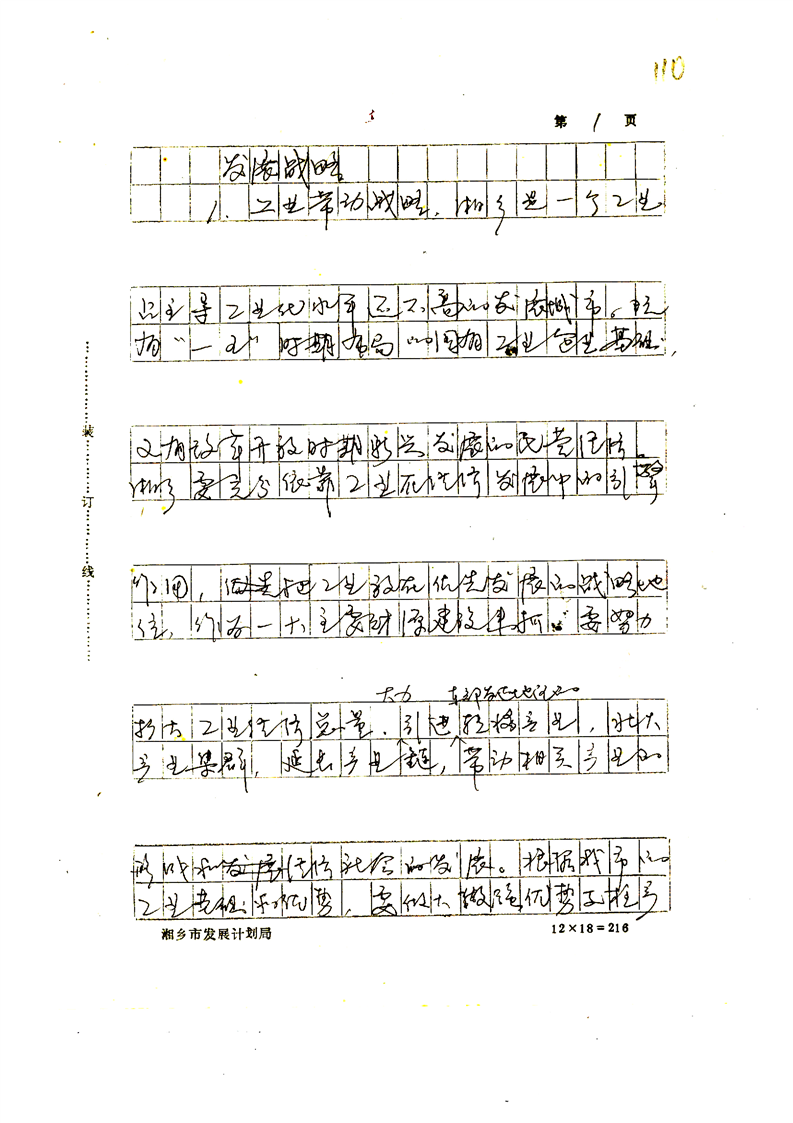 110
第 1 页
发展战略
1. 工业带动战略。湘乡是一个工业
占主导工业化水平还不高的发展城市。既
有“一五”时期布局的国有工业企业基础,
又有改革开放时期新兴发展的民营经济。
湘乡要充分依靠工业在经济发展中的引擎
作用, 把工业放在优先发展的战略地
位, 作为一大主要财源建设来抓。要努力
大力 东部发达地区的
扩大工业经济总量, 引进转移产业, 壮大
产业集群, 延长产业链, 带动相关产业的
形成和发展经济社会的发展。根据我市的
工业基础和优势, 要做大做强优势支柱产
装
订
线
湘乡市发展计划局
12×18=216